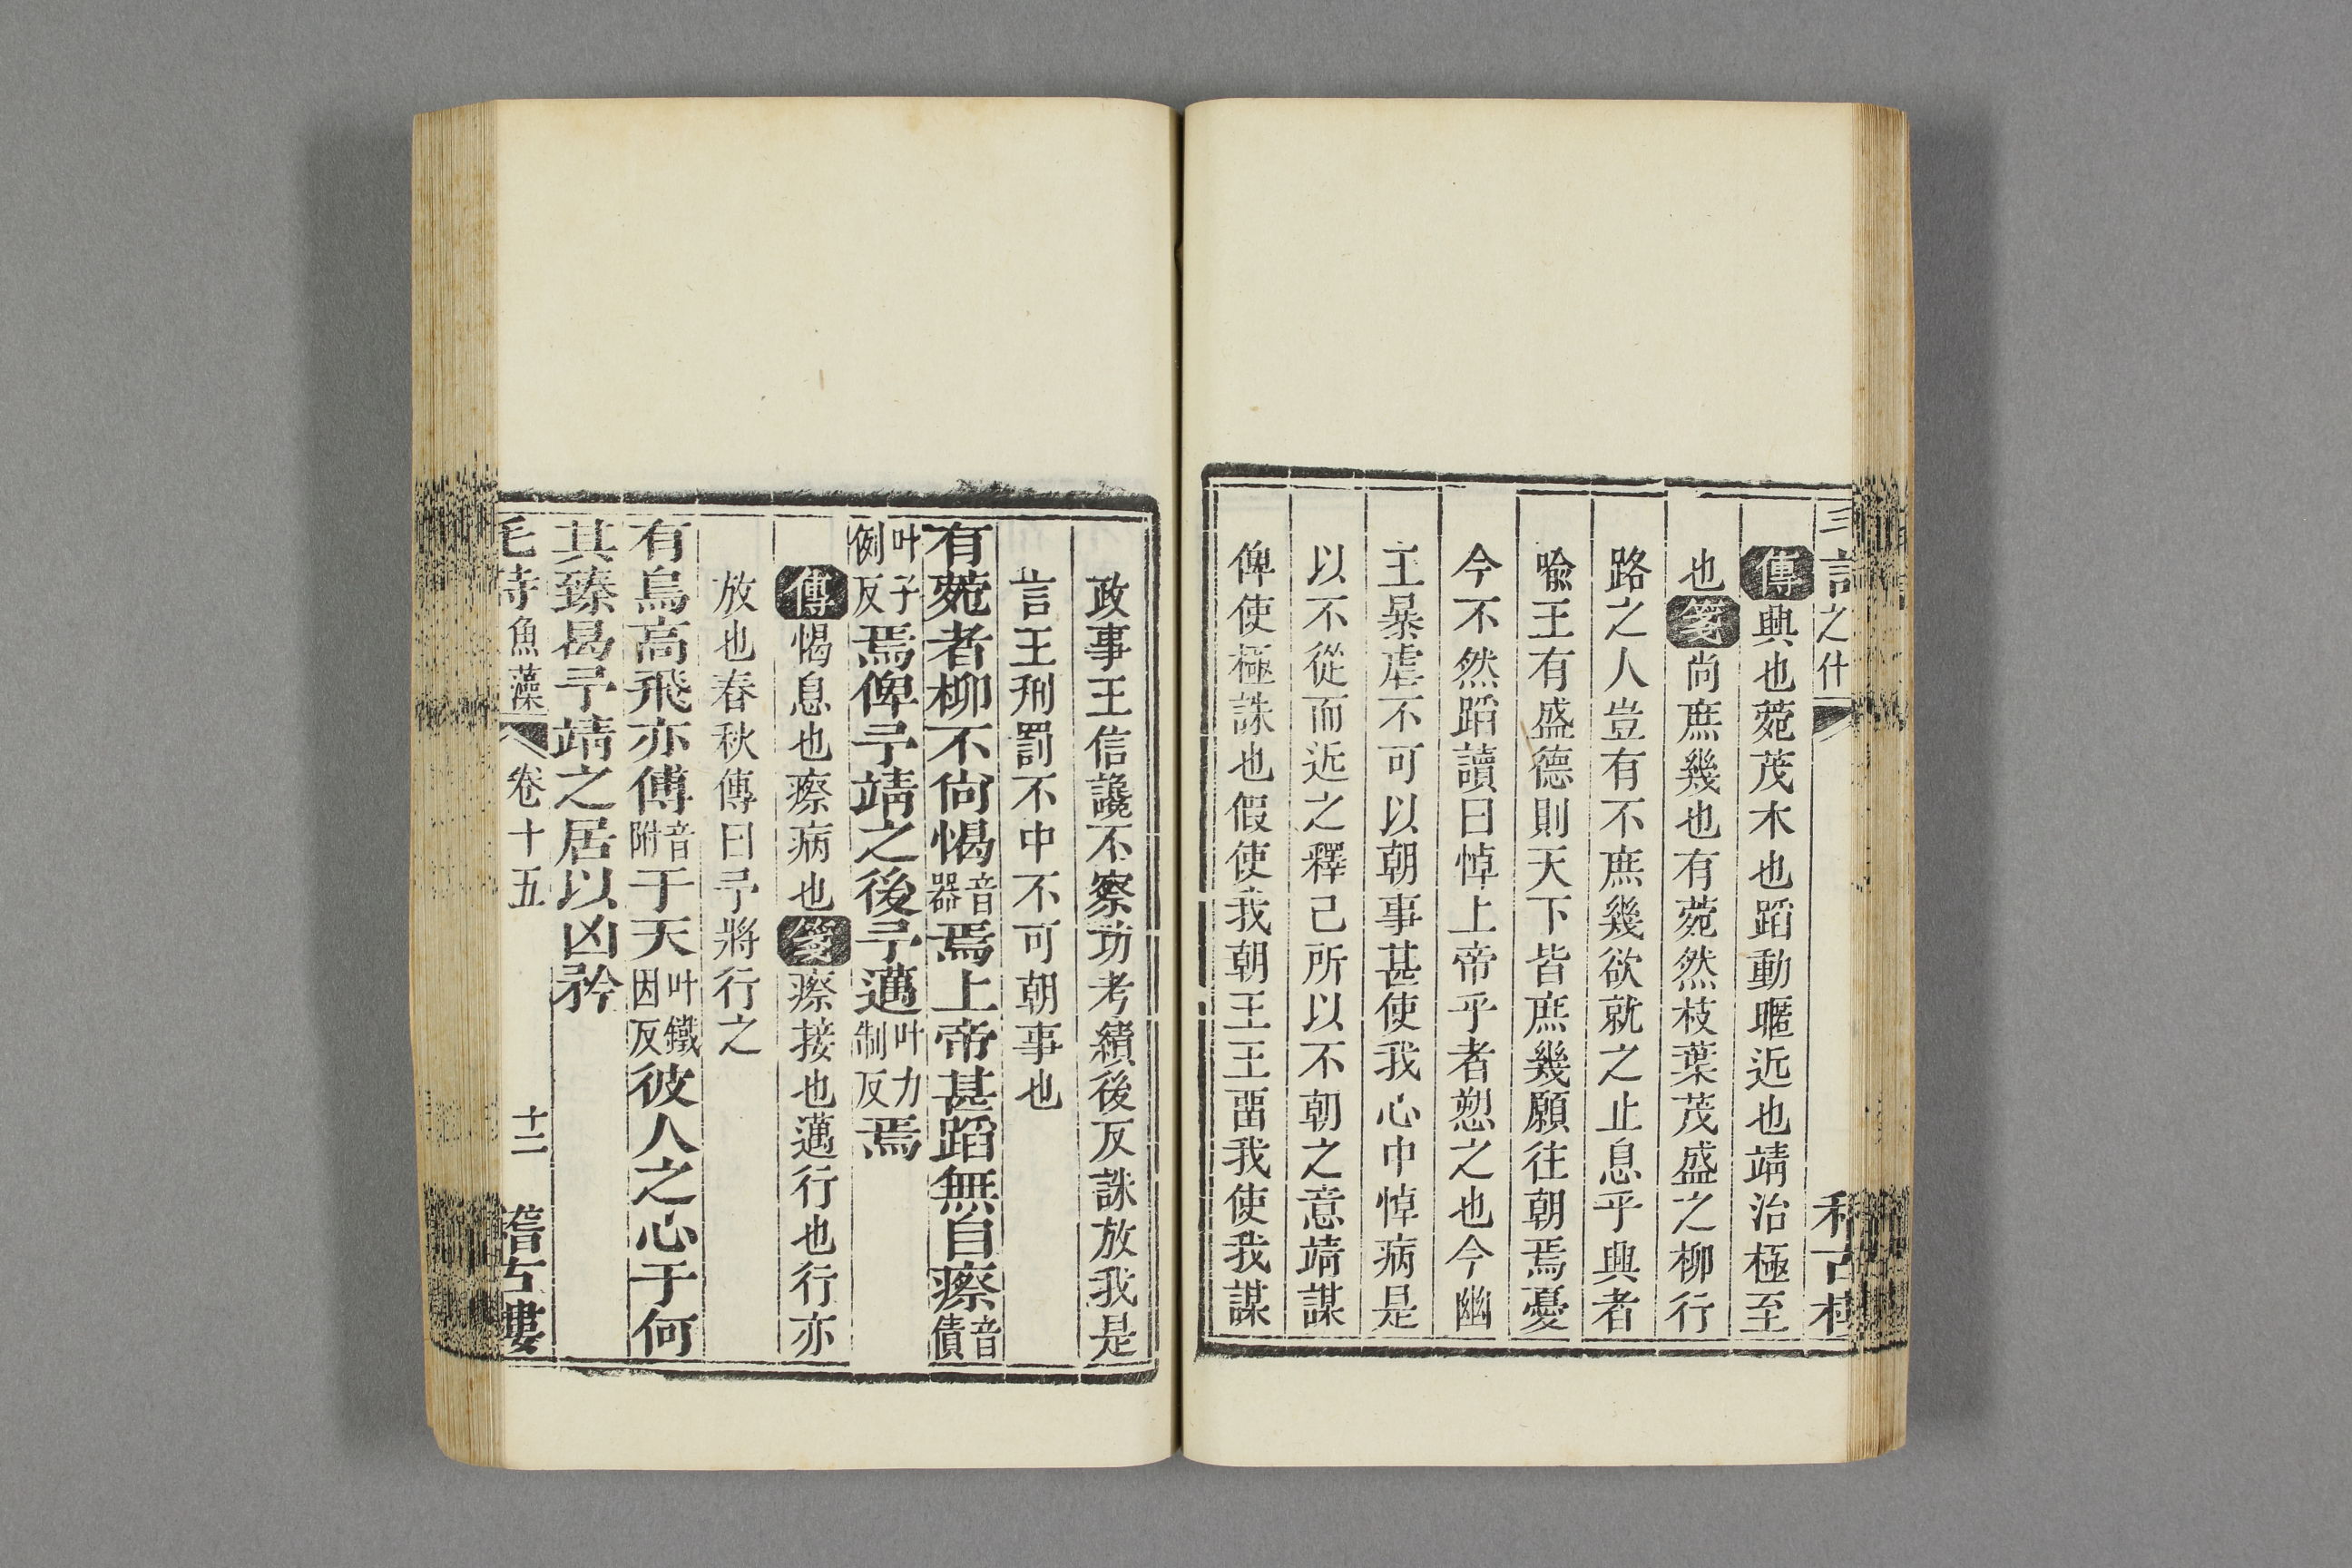 傳興也菀茂木也蹈動暱近也靖治極至
也箋尚庶幾也有菀然枝葉茂盛之柳行
路之人豈有不庶幾欲就之止息乎興者
喻王有盛德則天下皆庶幾願往朝焉憂
今不然蹈讀曰悼上帝乎者愬之也今幽
王暴虐不可以朝事甚使我心中悼病是
以不從而近之釋己所以不朝之意靖謀
俾使極誅也假使我朝王王畱我使我謀
政事王信讒不察功考績後反誅放我是
言王刑罰不中不可朝事也
有菀者柳不尙愒音器焉上帝甚蹈無自瘵音債
叶子例反焉俾予靖之後予邁叶力制反焉
傳愒息也瘵病也箋瘵接也邁行也行亦
放也春秋傳曰予將行之
有鳥高飛亦傅音附于天叶鐵因反彼人之心于何
其臻曷予靖之居以凶矜
毛詩魚藻 卷十五 十二